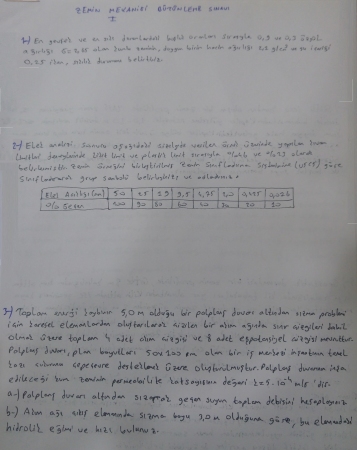 ZEMİN MEKANİĞİ BÜTÜNLEME SINAVI
I
1-) En gevşek ve en sıkı durumlardaki boşluk oranları sırasıyla 0,9 ve 0,3
olan kumlu zeminin, doygun birim hacim ağırlığı su içeriği
0,25 ise, sıkılık durumunu belirtiniz.
2-) Elek analizi sonucu aşağıdaki çizelgede verilen üzerinde yapılan kıvam
limitleri deneylerinde likit limit ve plastik limit sırasıyla ve olarak
belirlenmiştir. Zemin Birleştirilmiş Zemin Sınıflandırma Sistemine (USCS) göre
Sınıflandırarak grup sembolü belirleyiniz ve adlandırınız.
Elek Açıklığı (mm) 50 25 19 9,5 4,75 2,0
% Geçen 100 90 80 60
3-) Toplam enerji kaybının 5,0 m olduğu bir palplanş duvarı altından sızma problemi
için karesel elemanlardan oluşturularak çizilen bir akım ağında sınır çizgileri dahil
olmak üzere toplam 4 adet akım çizgisi ve 8 adet eşpotansiyel çizgisi mevcuttur.
Palplanş duvarı, plan boyutları 50x100 m olan bir iş merkezi inşaatının temel
kazı çukurunu çepeçevre desteklemek üzere oluşturulmuştur. Palplanş duvarının inşa
edileceği kum zeminin permeabilite katsayısının değeri k=5.10 m/s 'dir.
a-) Palplanş duvarı altından sızarak geçen suyun toplam debisini hesaplayınız
b-) Akım ağı çıkış elemanında sızma boyu 3,0 m olduğuna göre, bu elemandaki
hidrolik eğimi ve hızı bulunuz.